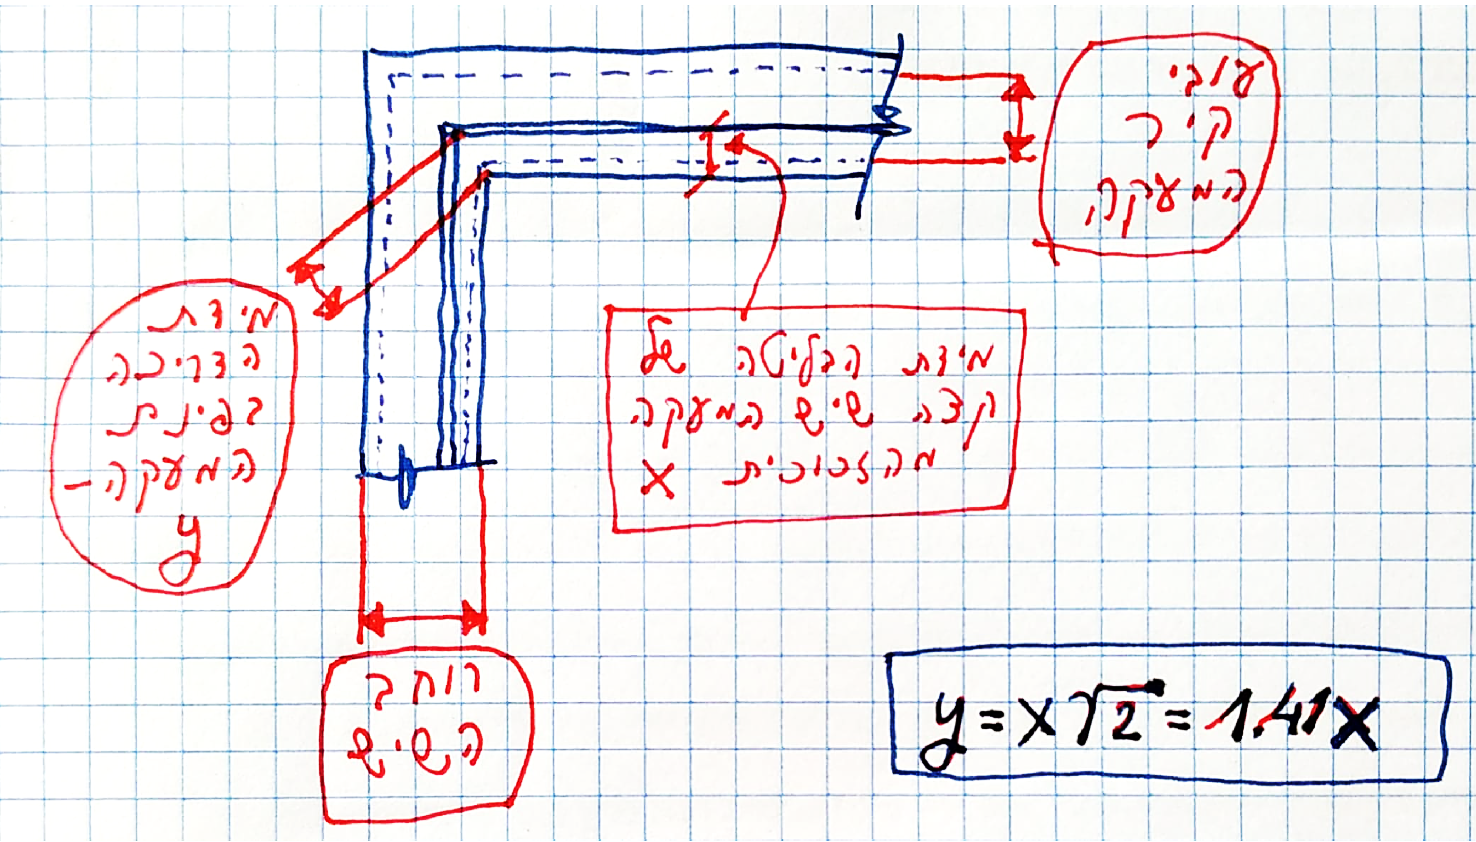 עובי
קיר
המעקה
מידת
הדריכה
בפינת
המעקה-
y
מידת הבליטה של
קצה שיש המעקה
מהזכוכית x
רוחב
השיש
y = x √2 = 1.41x